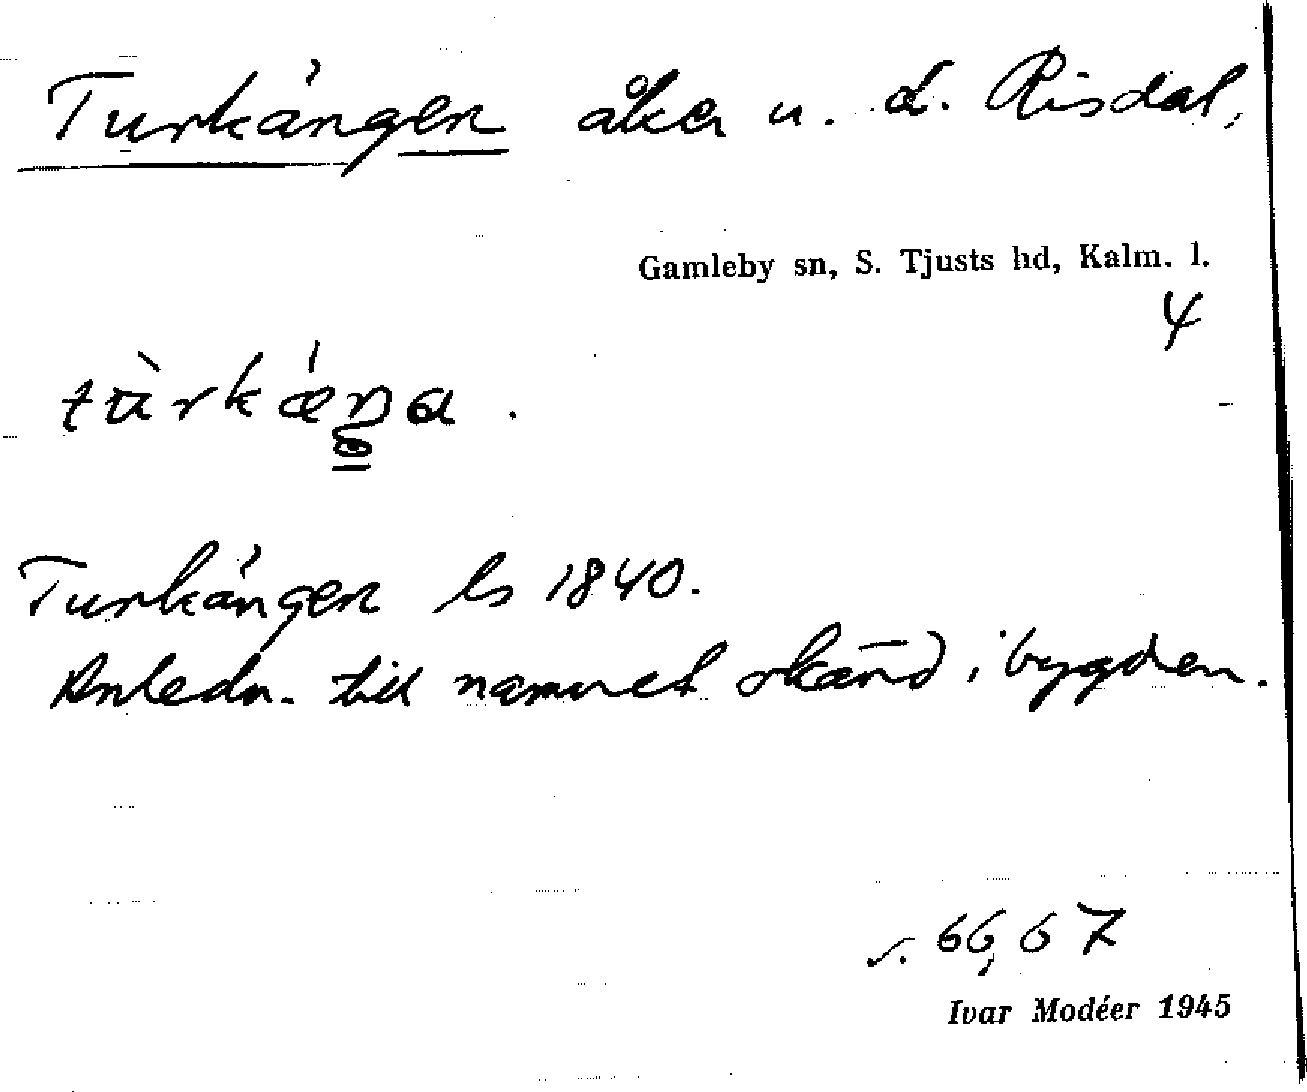 Turkängen åker u. d. Risdal,
Gamleby sn, S. Tjusts hd, Kalm. l.
4
Turkängen ls 1840.
Anledn. till namnet okänd i bygden.
s. 66, 67
Ivar Modéer 1945